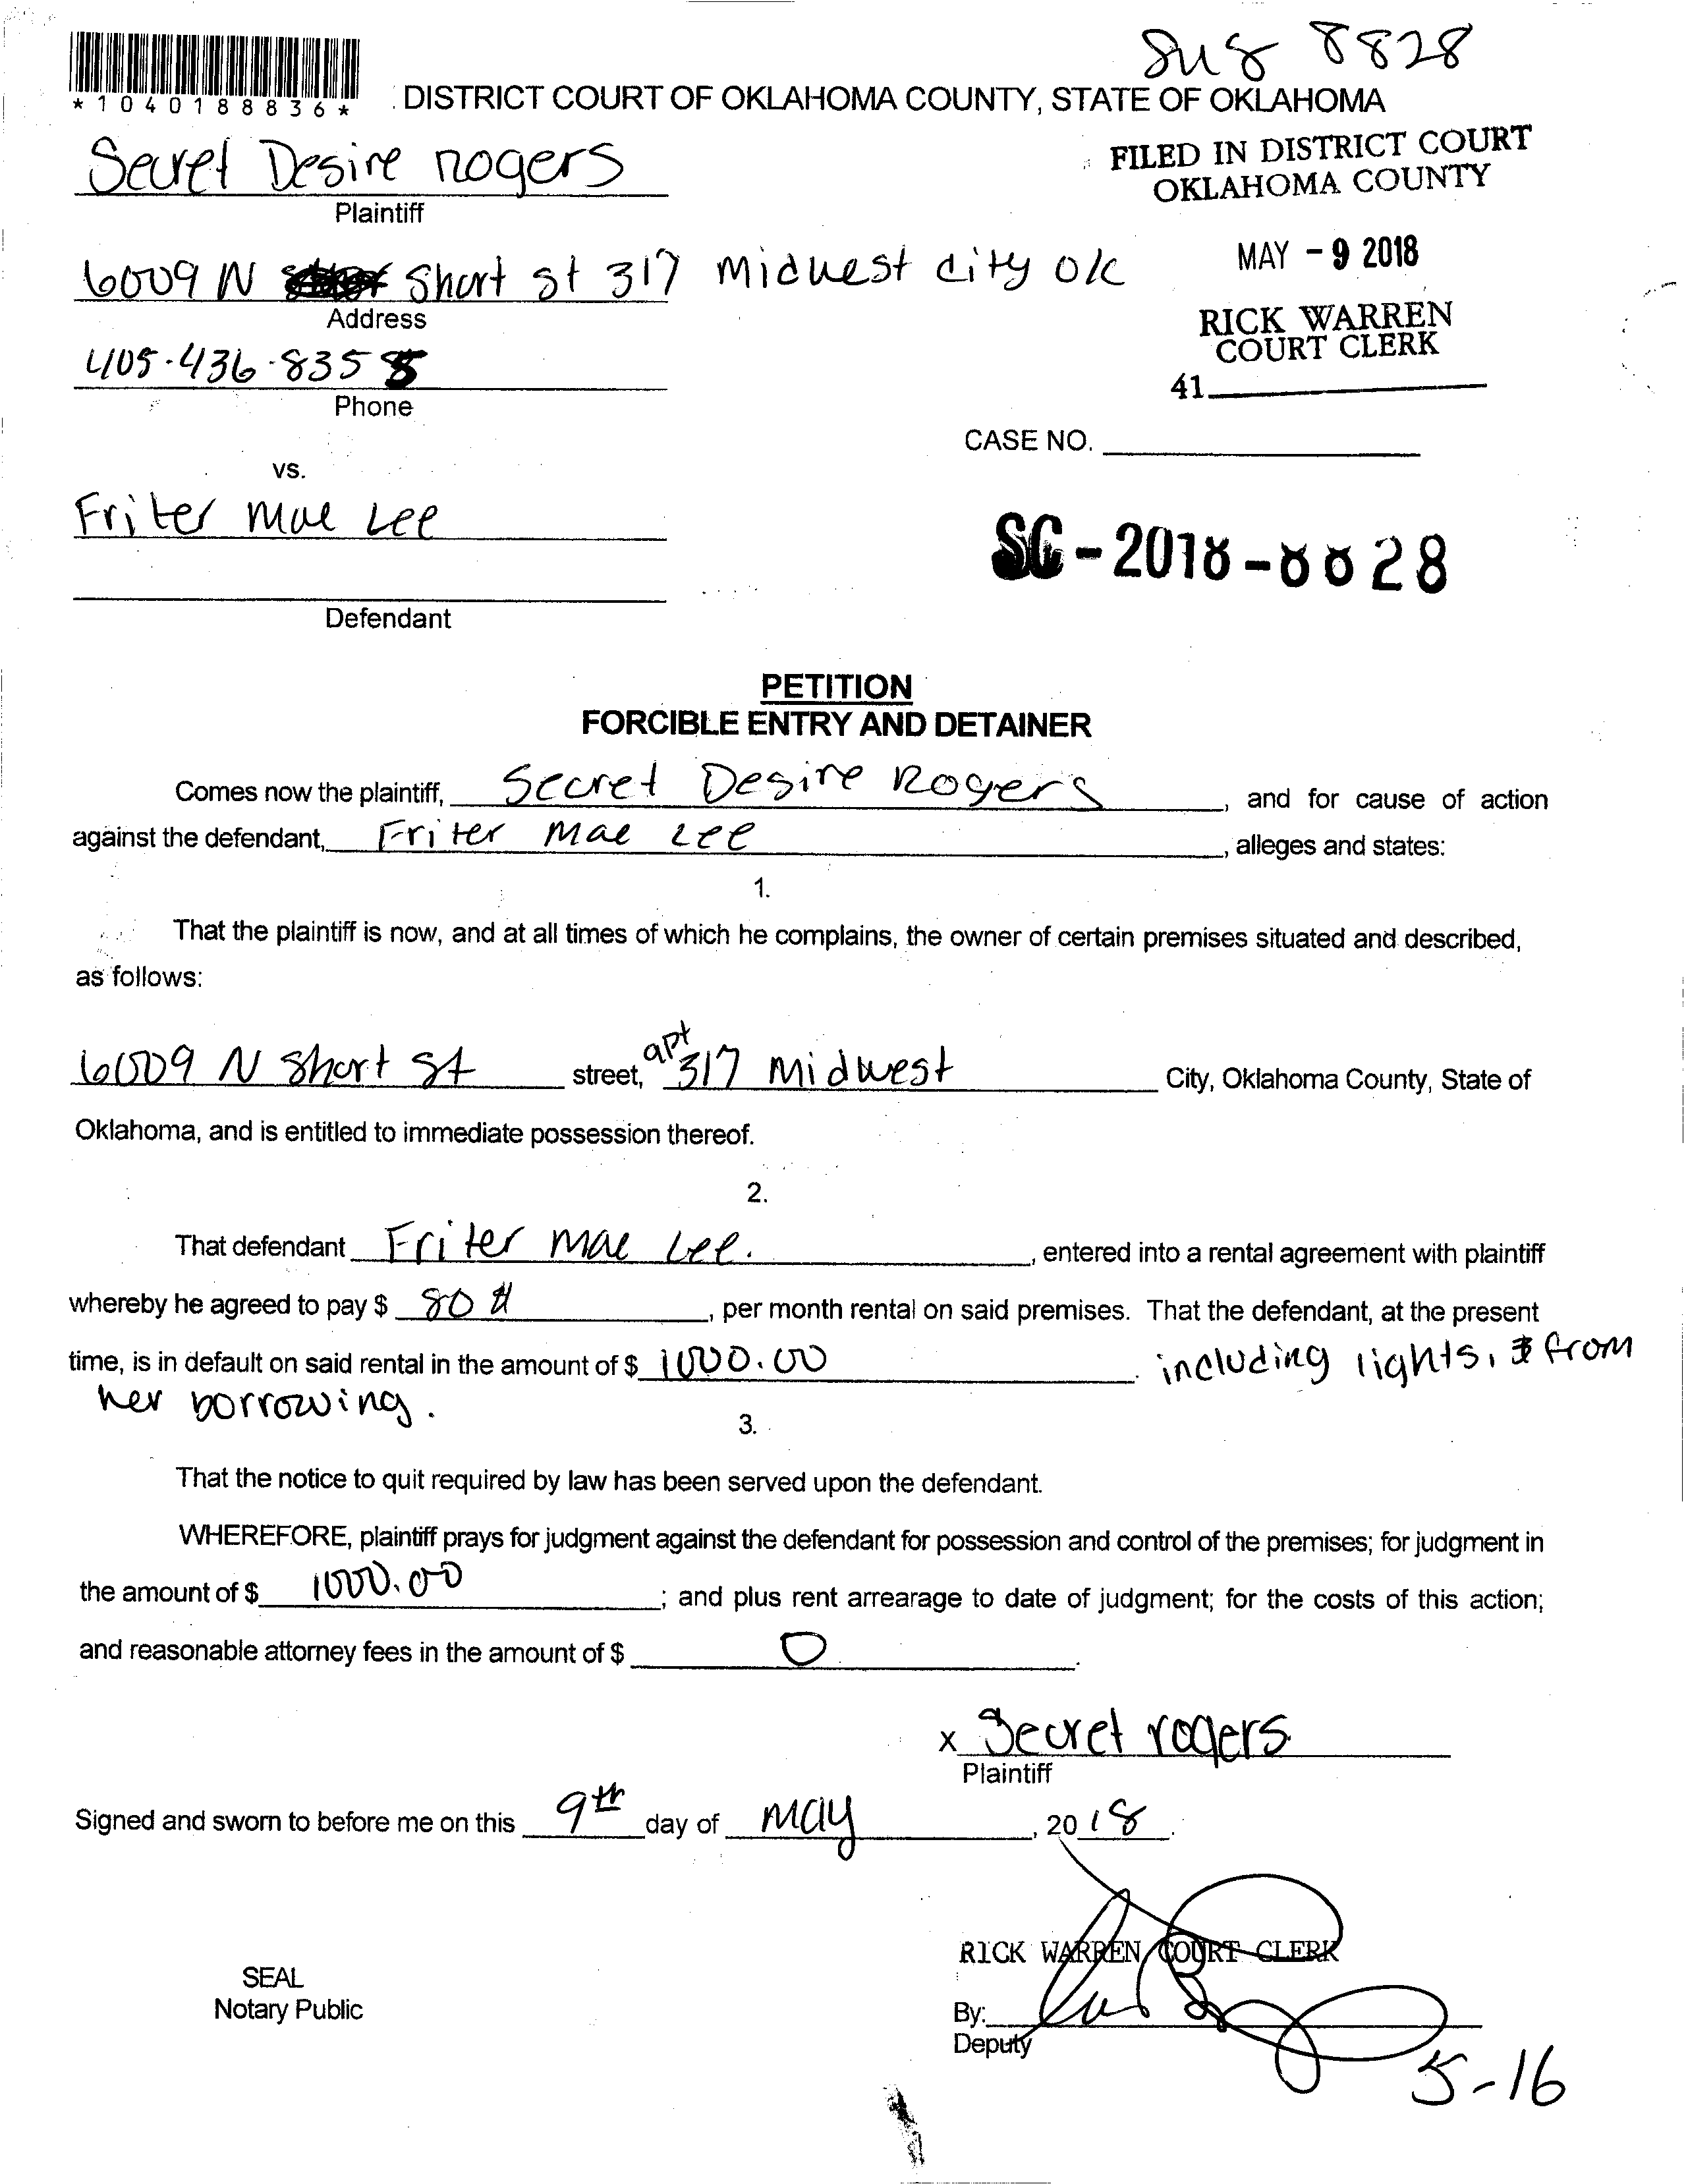 8828
*1040188836*
DISTRICT COURT OF OKLAHOMA COUNTY, STATE OF OKLAHOMA
Secret Desire rogers
Plaintiff
FILED IN DISTRICT COURT
OKLAHOMA COUNTY
6009 N Short st 317 Midwest city ok
Address
MAY - 9 2018
RICK WARREN
COURT CLERK
405-436-8358
Phone
41
CASE NO.
vs.
Friter Mae Lee
SC-2018-8828
Defendant
PETITION
FORCIBLE ENTRY AND DETAINER
Comes now the plaintiff, Secret Desire Rogers, and for cause of action
against the defendant, Friter Mae Lee, alleges and states:
1.
That the plaintiff is now, and at all times of which he complains, the owner of certain premises situated and described,
as follows:
6009 N Short St street, apt 317 Midwest City, Oklahoma County, State of
Oklahoma, and is entitled to immediate possession thereof.
2.
That defendant Friter Mae Lee., entered into a rental agreement with plaintiff
whereby he agreed to pay $ 80, per month rental on said premises. That the defendant, at the present
time, is in default on said rental in the amount of $ 1000.00. including lights, from
her borrowing.
3.
That the notice to quit required by law has been served upon the defendant.
WHEREFORE, plaintiff prays for judgment against the defendant for possession and control of the premises; for judgment in
the amount of $ 1000.00; and plus rent arrearage to date of judgment; for the costs of this action;
and reasonable attorney fees in the amount of $ 0.
x Secret rogers
Plaintiff
Signed and sworn to before me on this 9th day of May, 2018.
RICK WARREN COURT CLERK
SEAL
Notary Public
By:
Deputy
5-16